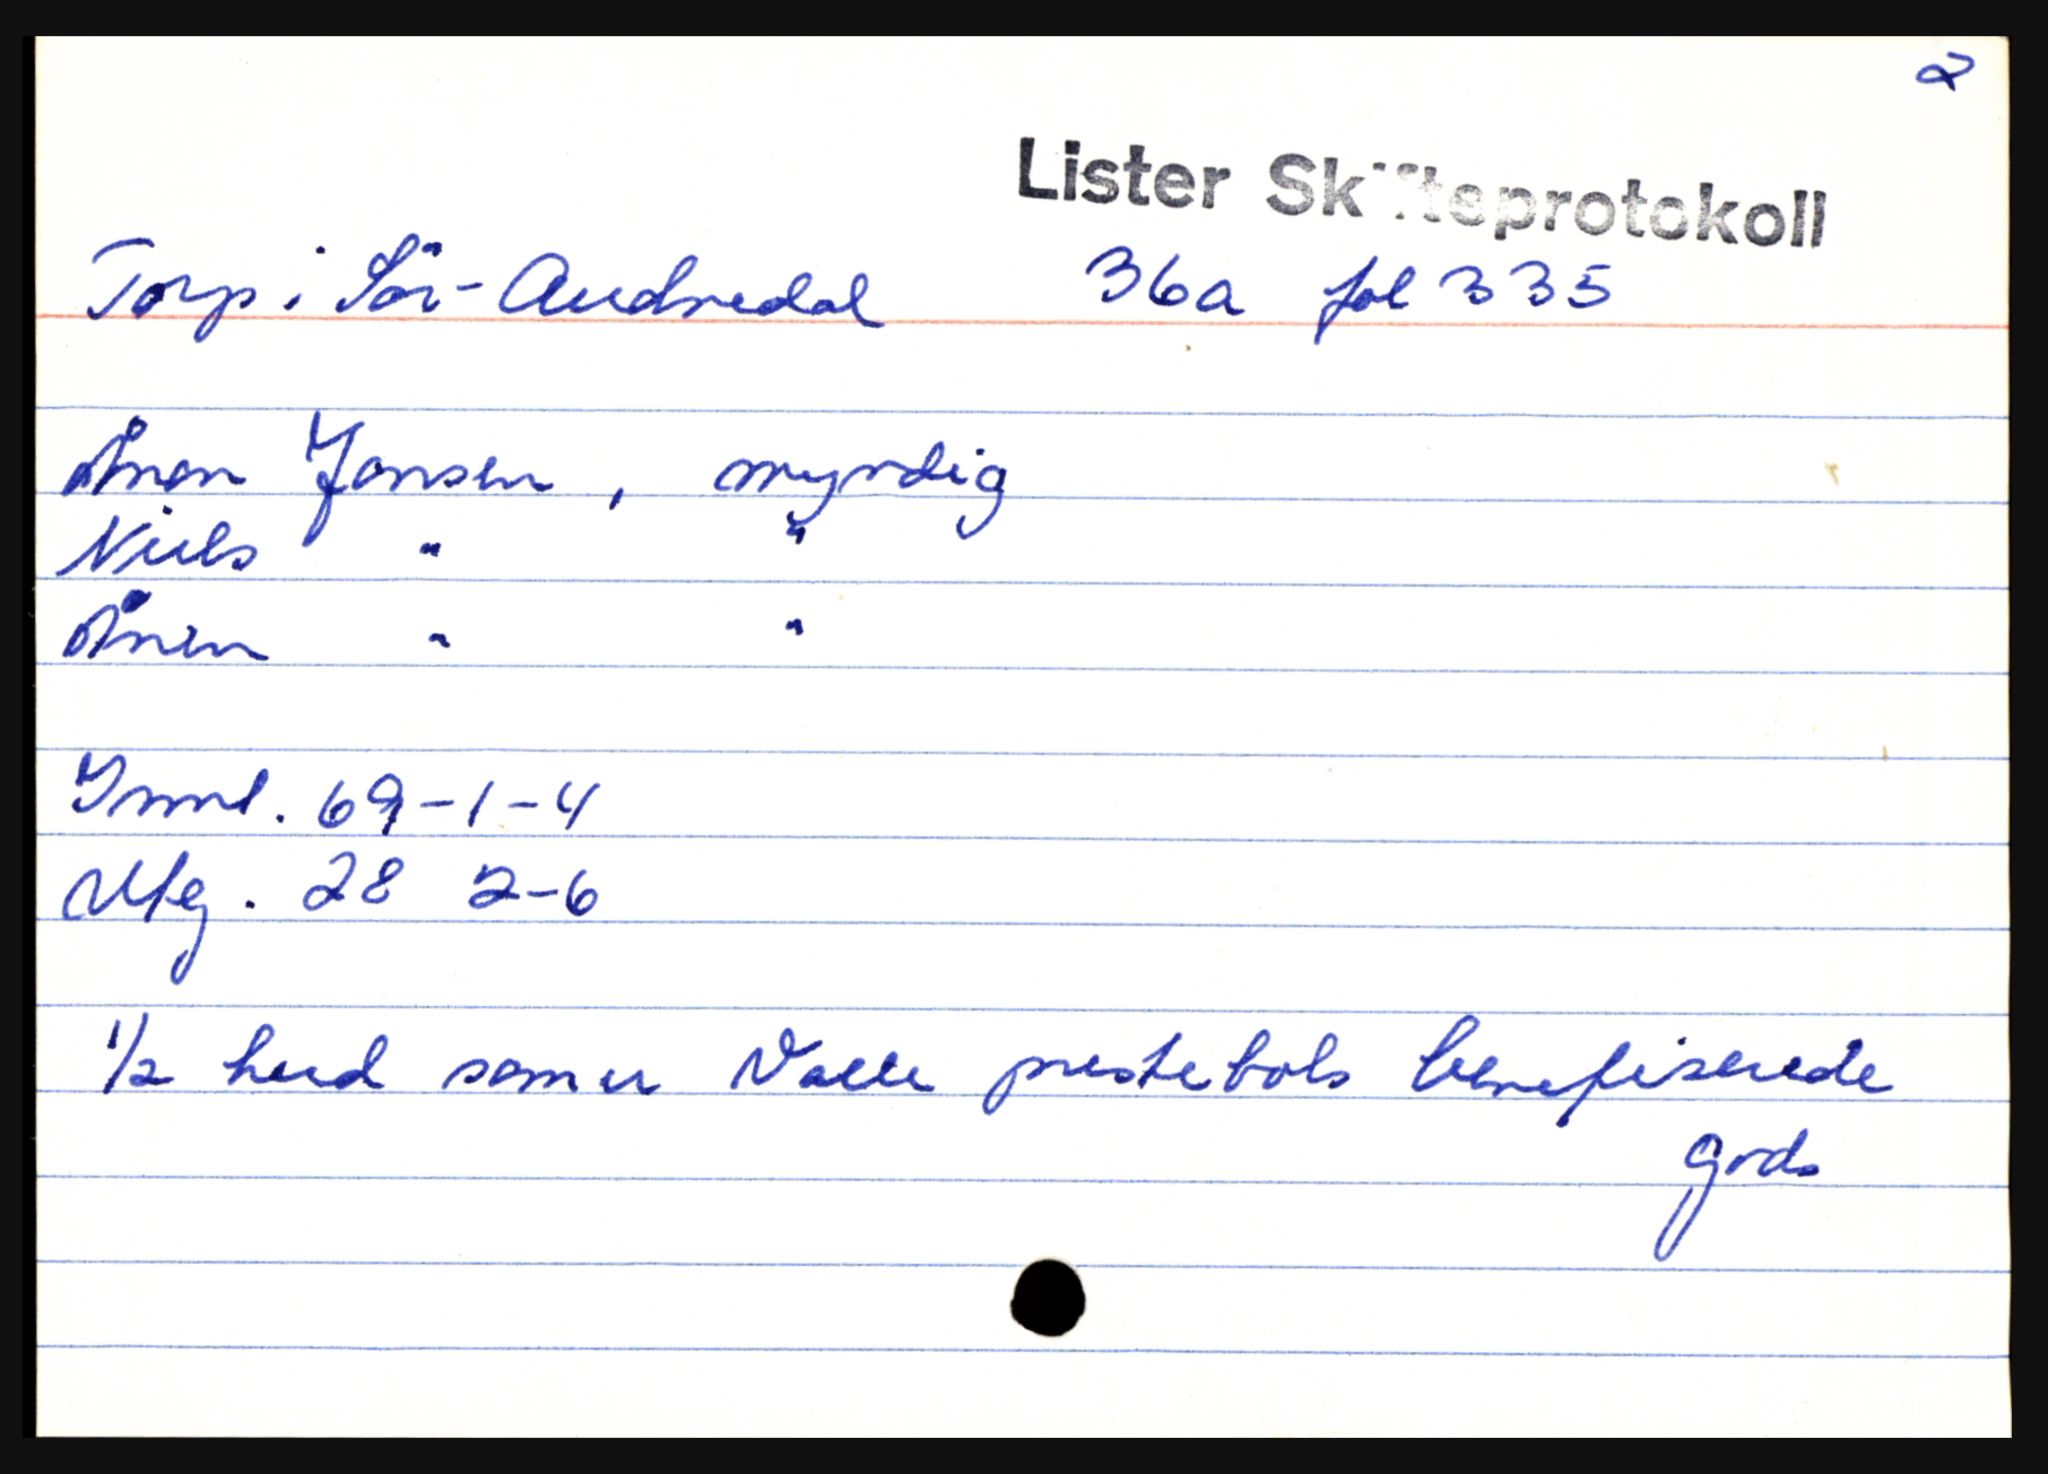 2
Lister Skifteprotokoll
Torp i Sör-Audnedal 36a fol 335
Ånen Jonsen, myndig
Niels " "
Ånen " "
Innt. 69-1-4
Utg. 28 2-6
1/2 hud som er Valle prestebols benefiserede
gods